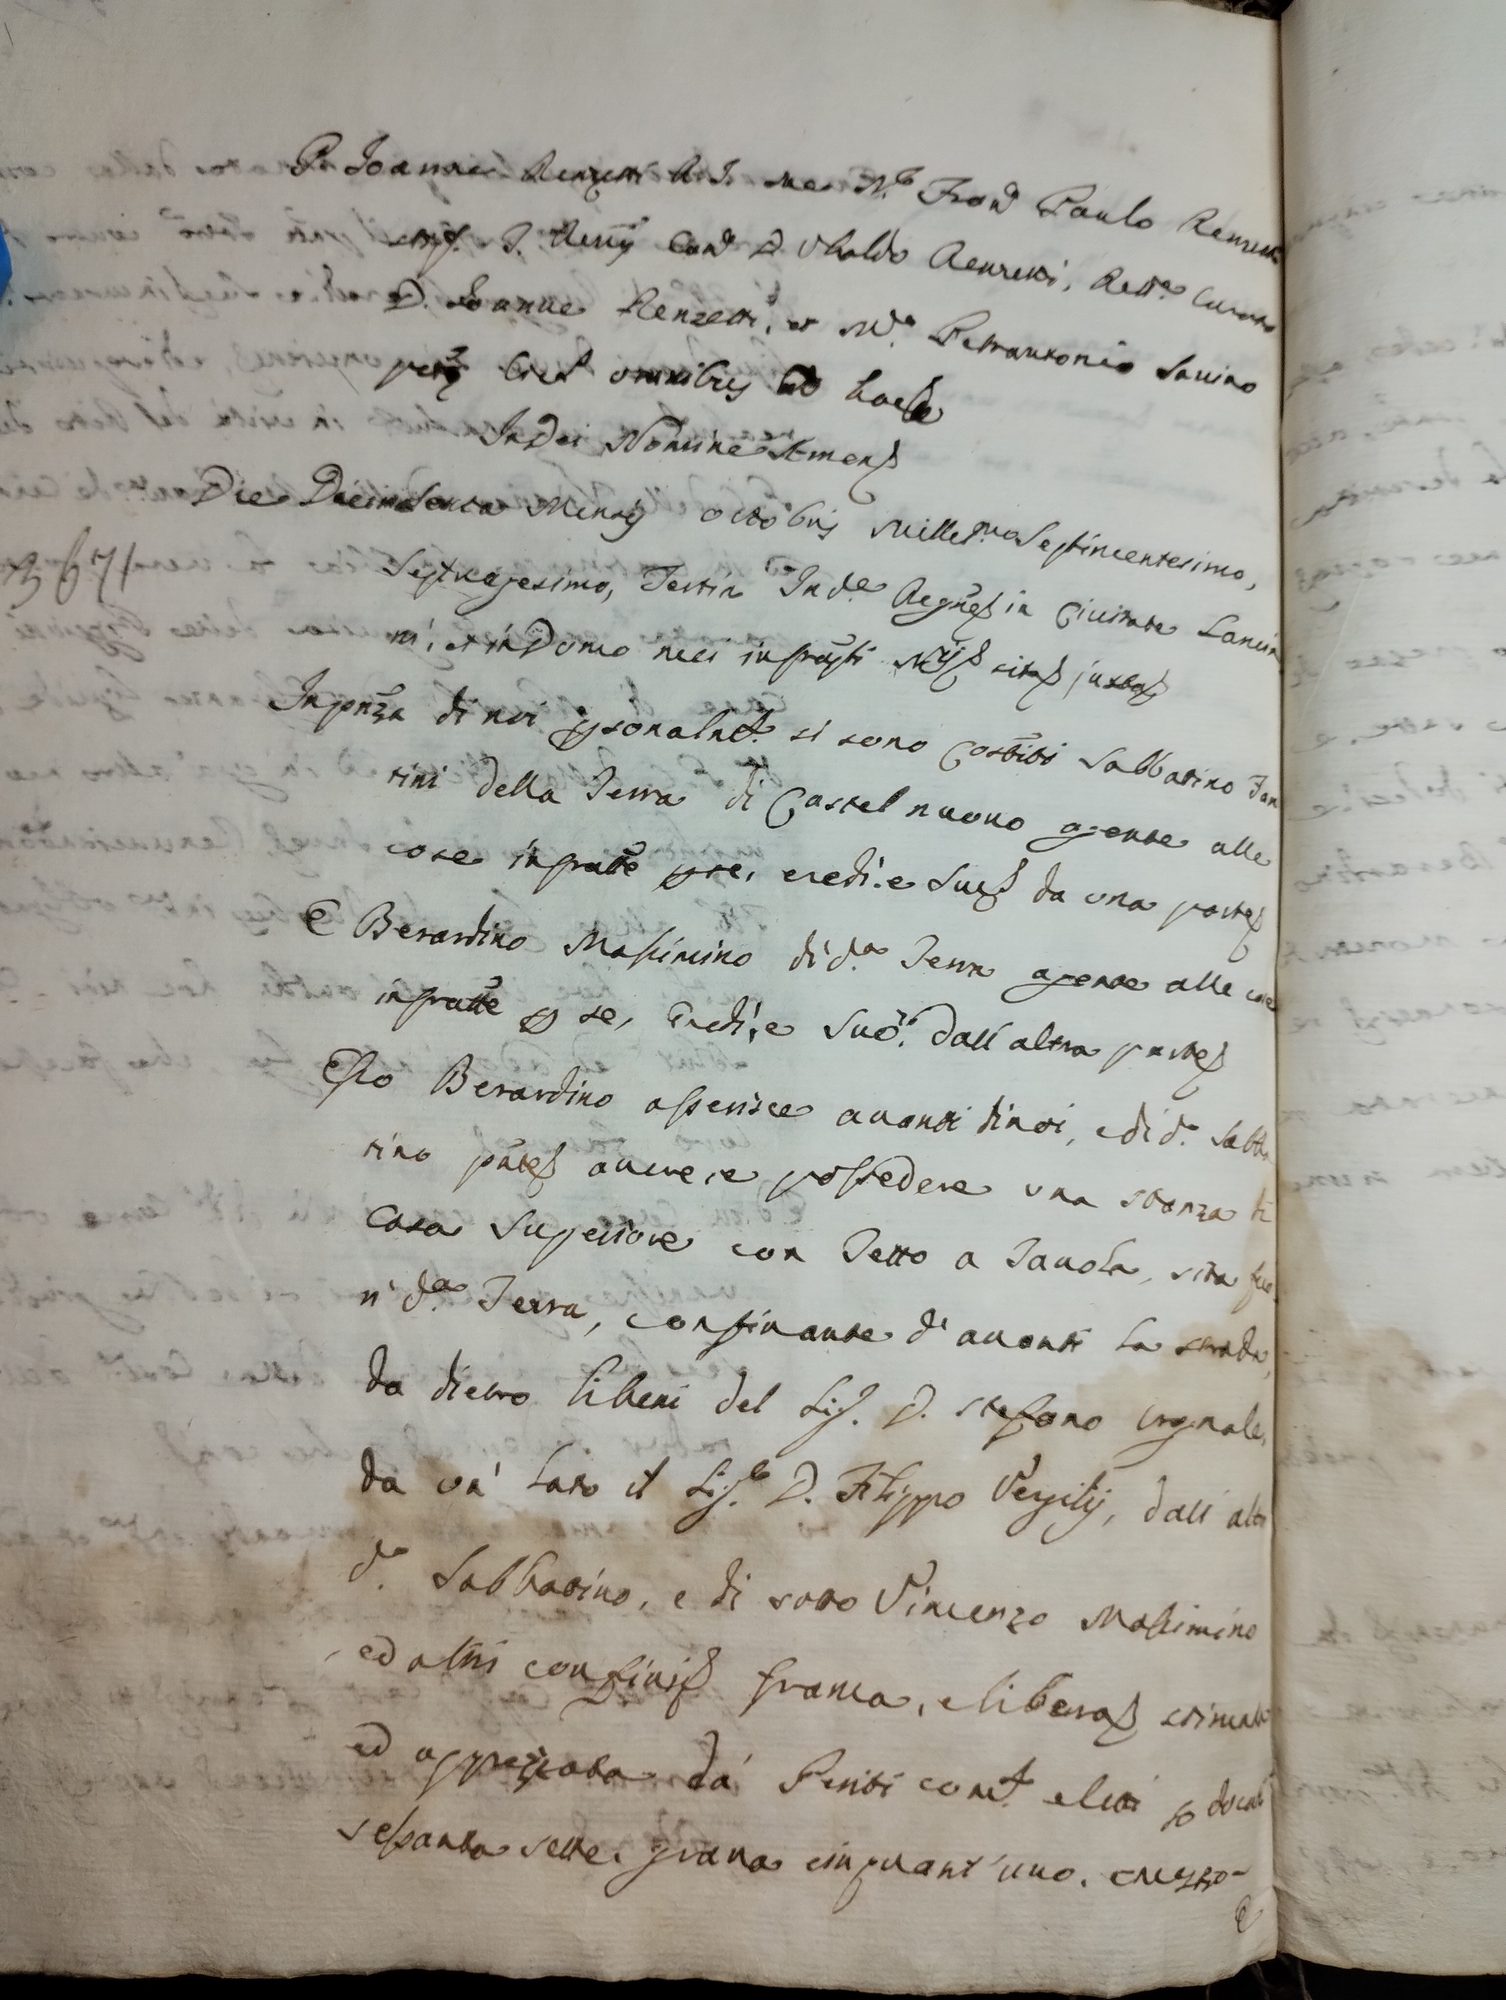 P. Joanne Renzetti R. J. me N.r Fran.o Paulo Renzetti
D. Ubaldo Renzetti,
D. Joanne Renzetti, et M.o Petrantonio Savino
omnibus
In Dei Nomine Amen
Die Decimasexta Mensis octobris Mille.mo Septincentesimo,
367
Septuagesimo, Tertia Ind.e Regnes in Civitate Lancia
ni, et in Domo mei
In pnza di noi psonalmt. si sono costiti Sabbatino Fan
tini della Terra di Castel nuovo agente alle
cose infratte p se, eredi, e Suc. da una parte
E Berardino Massimino di d.a Terra agente alle cose
infratte p se, Eredi, e Suc. dall'altra parte
Esso Berardino asserisce avanti di noi, e di d.o Sabba
tino pnte avere, e possedere una stanza di
Casa Superiore con Tetto a Tavola, sita fuo
ri d.a Terra, confinante d'avanti la strada,
da dietro li beni del Sig. D. Stefano Crognale,
da un' lato il Sig.r D. Filippo Vergilij, dall'altro
d.o Sabbatino, e di sotto Vincenzo Massimino
ed altri confini franca, e libera stimata
ed apprezzata da' Periti com.t eletti p docati
sessanta sette, grana cinquant'uno, e mezzo-
e